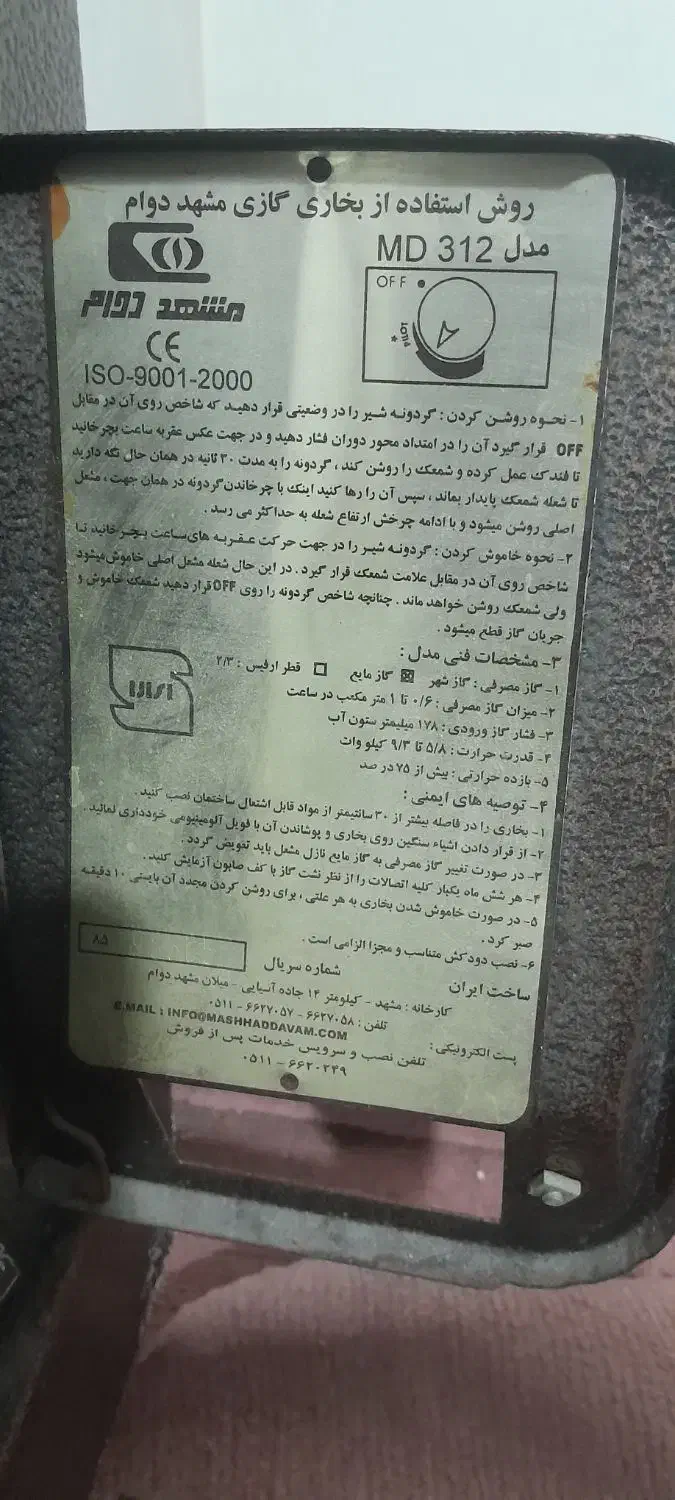 روش استفاده از بخاری گازی مشهد دوام
مدل MD 312
OFF
PILOT
مشهد دوام
CE
ISO-9001-2000
۱- نحوه روشن کردن : گردونه شیر را در وضعیتی قرار دهید که شاخص روی آن در مقابل
OFF قرار گیرد آن را در امتداد محور دوران فشار دهید و در جهت عکس عقربه ساعت بچرخانید
تا فندک عمل کرده و شمعک را روشن کند ، گردونه را به مدت ۳۰ ثانیه در همان حال نگه دارید
تا شعله شمعک پایدار بماند ، سپس آن را رها کنید اینک با چرخاندن گردونه در همان جهت ، مشعل
اصلی روشن میشود و با ادامه چرخش ارتفاع شعله به حداکثر می رسد .
۲- نحوه خاموش کردن : گردونه شیر را در جهت حرکت عقربه های ساعت بچرخانید تا
شاخص روی آن در مقابل علامت شمعک قرار گیرد . در این حال شعله مشعل اصلی خاموش میشود
ولی شمعک روشن خواهد ماند . چنانچه شاخص گردونه را روی OFF قرار دهید شمعک خاموش و
جریان گاز قطع میشود .
۳- مشخصات فنی مدل :
۱- گاز مصرفی : گاز شهر ☒ گاز مایع ☐ قطر ارفیس : ۲/۳
۲- میزان گاز مصرفی : ۰/۶ تا ۱ متر مکعب در ساعت
۳- فشار گاز ورودی : ۱۷۸ میلیمتر ستون آب
۴- قدرت حرارت : ۵/۸ تا ۹/۳ کیلو وات
۵- بازده حرارتی : بیش از ۷۵ در صد
۴- توصیه های ایمنی :
۱- بخاری را در فاصله بیشتر از ۳۰ سانتیمتر از مواد قابل اشتعال ساختمان نصب کنید .
۲- از قرار دادن اشیاء سنگین روی بخاری و پوشاندن آن با فویل آلومینیومی خودداری نمائید .
۳- در صورت تغییر گاز مصرفی به گاز مایع نازل مشعل باید تعویض گردد .
۴- هر شش ماه یکبار کلیه اتصالات را از نظر نشت گاز با کف صابون آزمایش کنید .
۵- در صورت خاموش شدن بخاری به هر علتی ، برای روشن کردن مجدد آن بایستی ۱۰ دقیقه
صبر کرد .
۶- نصب دودکش متناسب و مجزا الزامی است .
ساخت ایران شماره سریال ۸۵
کارخانه : مشهد - کیلومتر ۱۴ جاده آسیایی - میلان مشهد دوام
تلفن : ۶۶۲۷۰۵۸ - ۶۶۲۷۰۵۷ - ۰۵۱۱
پست الکترونیکی : E.MAIL : INFO@MASHHADDAVAM.COM
تلفن نصب و سرویس خدمات پس از فروش
۰۵۱۱ - ۶۶۲۰۲۴۹